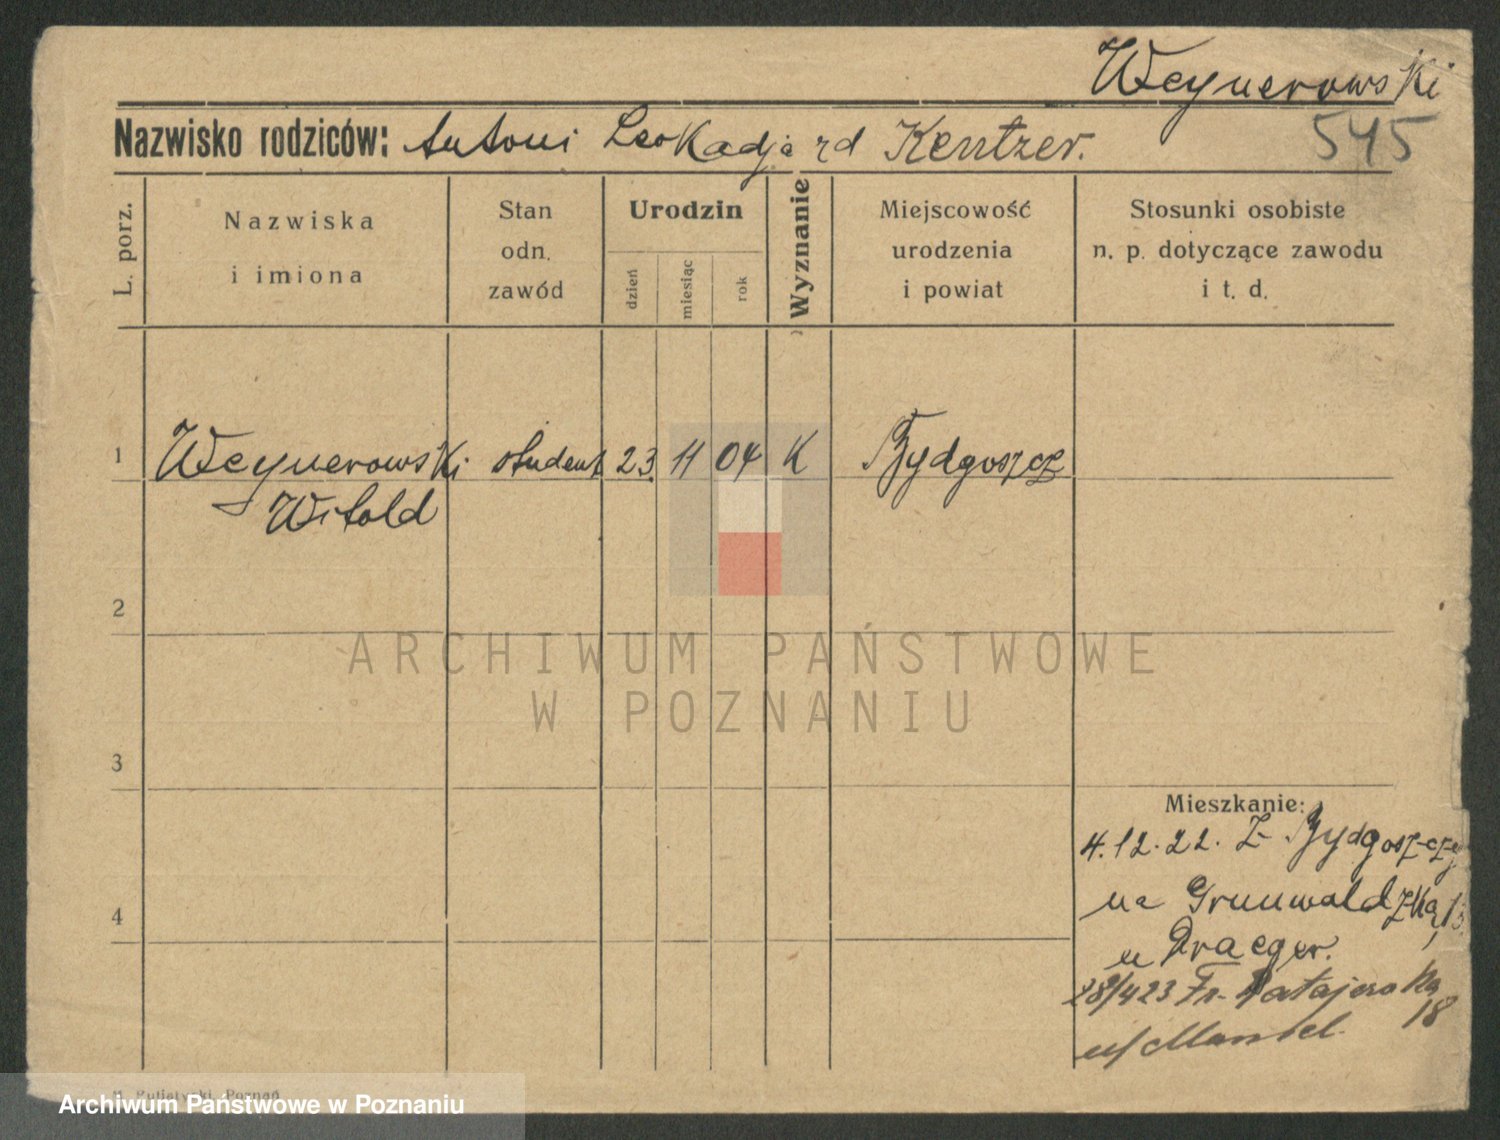 Weynerowski
Nazwisko rodziców: Antoni Leokadja rd Kentzer.
545
L. porz.
Nazwiska
i imiona
Stan
odn.
zawód
Urodzin
dzień
miesiąc
rok
Wyznanie
Miejscowość
urodzenia
i powiat
Stosunki osobiste
n. p. dotyczące zawodu
i t. d.
1 Weynerowski student 23. 11 04 K Bydgoszcz
Witold
2
ARCHIWUM PAŃSTWOWE
W POZNANIU
3
Mieszkanie:
4.12.22. Z Bydgoszczy
na Grunwaldzką, 13
4
u Draeger.
28/4 23 Fr. Ratajczaka
18
u/
Poznań
Archiwum Państwowe w Poznaniu